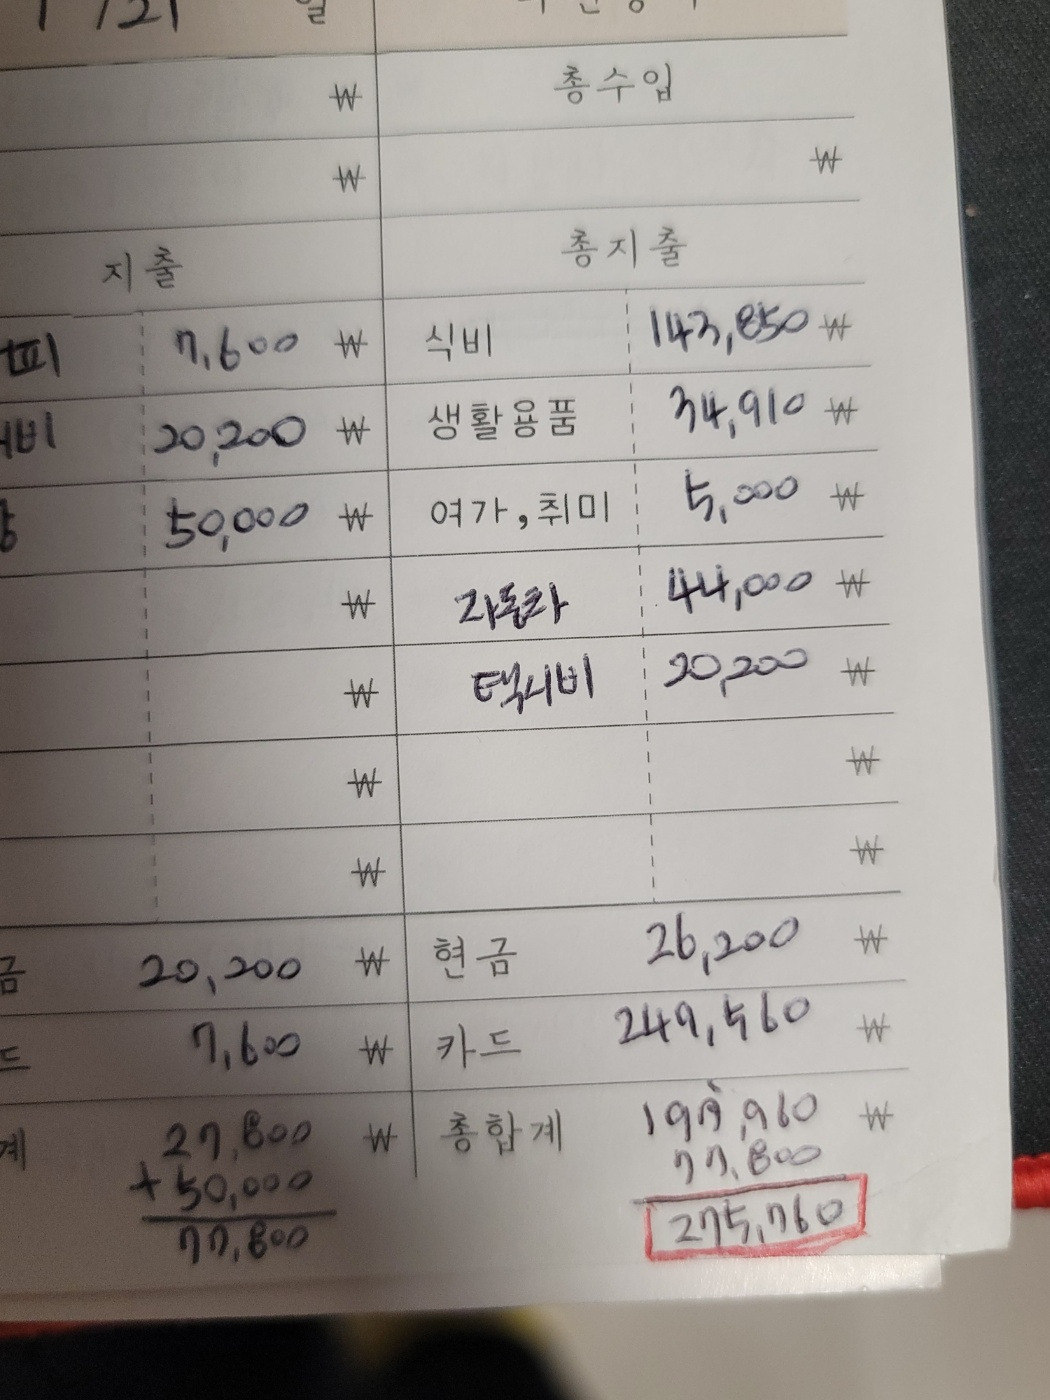 /21 일
₩ 총수입
₩ ₩
지출 총지출
피 7,600 ₩ 식비 143,850 ₩
비 20,200 ₩ 생활용품 34,910 ₩
50,000 ₩ 여가,취미 5,000 ₩
₩ 자동차 44,000 ₩
₩ 택시비 20,200 ₩
₩ ₩
₩ ₩
금 20,200 ₩ 현금 26,200 ₩
드 7,600 ₩ 카드 249,560 ₩
계 27,800 ₩ 총합계 197,960 ₩
+50,000 77,800
77,800 275,760